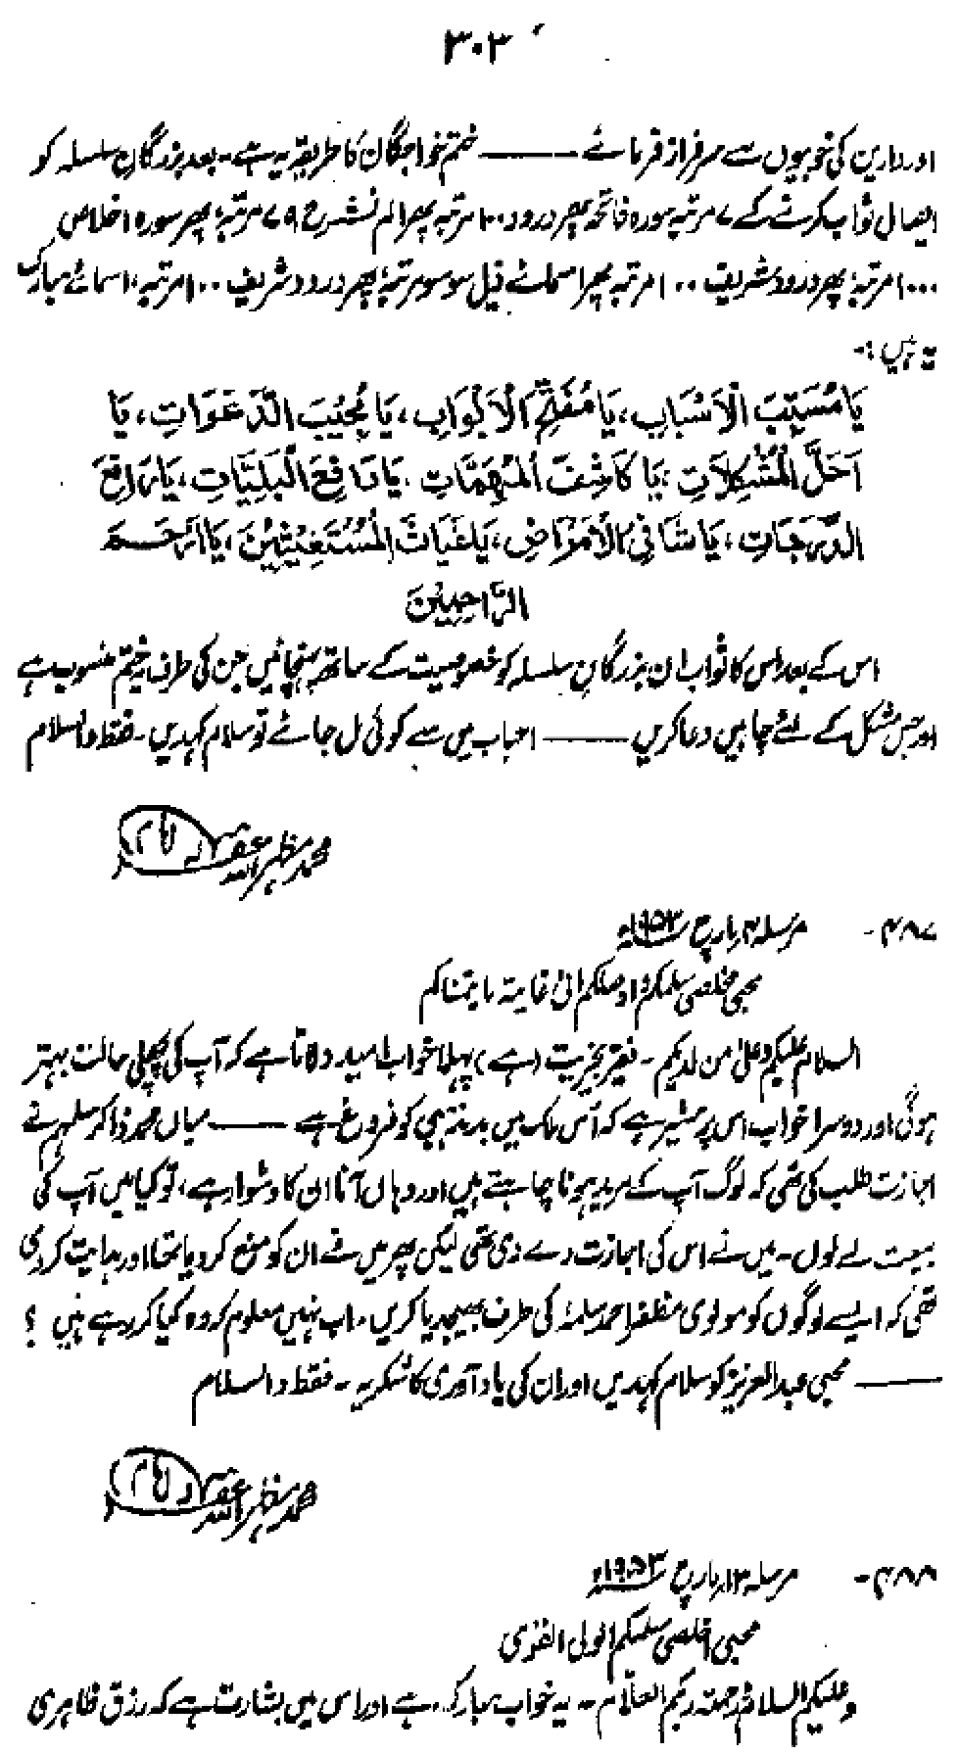 ۳۰۳
اور دارین کی خوبیوں سے سرفراز فرمائے ——— ختم خواجگان کا طریقہ یہ ہے۔ بعد بزرگانِ سلسلہ کو
ایصال ثواب کرنے کے ۷ مرتبہ سورہ فاتحہ پھر درود ۱۰۰ مرتبہ پھر الم نشرح ۷۹ مرتبہ، پھر سورہ اخلاص
۱۰۰۰ مرتبہ، پھر درود شریف ۱۰۰ مرتبہ پھر اسمائے ذیل سو سو مرتبہ، پھر درود شریف ۱۰۰ مرتبہ، اسمائے مبارک
یہ ہیں :۔
يَا مُسَبِّبَ الْاَسْبَابِ، يَا مُفَتِّحَ الْاَبْوَابِ، يَا مُجِيْبَ الدَّعَوَاتِ، يَا
اَحَلَّ الْمُشْكِلَاتِ، يَا كَاشِفَ الْمُهِمَّاتِ، يَا دَافِعَ الْبَلِيَّاتِ، يَا رَافِعَ
الدَّرَجَاتِ، يَا شَافِيَ الْاَمْرَاضِ، يَا غَيَاثَ الْمُسْتَغِيْثِيْنَ، يَا اَرْحَمَ
الرَّاحِمِيْنَ
اس کے بعد اس کا ثواب ان بزرگانِ سلسلہ کو خصوصیت کے ساتھ پہنچائیں جن کی طرف یہ ختم منسوب ہے
اور جس مشکل کے لئے چاہیں دعا کریں ——— احباب میں سے کوئی مل جائے تو سلام کہدیں۔ فقط والسلام
محمد مظہر اللہ
۴۸۷۔ مرسلہ ۴؍ مارچ ۱۹۵۳ء
محبی مخلصی سلمکم و اوصلکم الیٰ غایۃ ما یتمناکم
السلام علیکم وعلیٰ من لدیکم۔ فقیر بخیریت (ہے) پہلا خواب امید دلاتا ہے کہ آپ کی پچھلی حالت بہتر
ہوگی اور دوسرا خواب اس پر مشیر ہے کہ اُس ملک میں بدمذہبی کو فروغ ہے ——— میاں محمد ذاکر سلمہ نے
اجازت طلب کی تھی کہ لوگ آپ کے مرید ہونا چاہتے ہیں اور وہاں آنا ان کا دشوار ہے، تو کیا میں آپ کی
بیعت لے لوں۔ میں نے اس کی اجازت دے دی تھی لیکن پھر میں نے ان کو منع کر دیا تھا اور ہدایت کر دی
تھی کہ ایسے لوگوں کو مولوی مظفر احمد سلمہٗ کی طرف بھیجدیا کریں۔ اب نہیں معلوم کہ وہ کیا کر رہے ہیں ؟
——— محبی عبدالعزیز کو سلام کہدیں اور ان کی یاد آوری کا شکریہ۔ فقط والسلام
محمد مظہر اللہ
۴۸۸۔ مرسلہ ۱۳؍ مارچ ۱۹۵۳ء
محبی اخلصی سلمکم المولی القوی
وعلیکم السلام ورحمۃ ربکم العلام۔ یہ خواب مبارک ہے اور اس میں بشارت ہے کہ رزق ظاہری